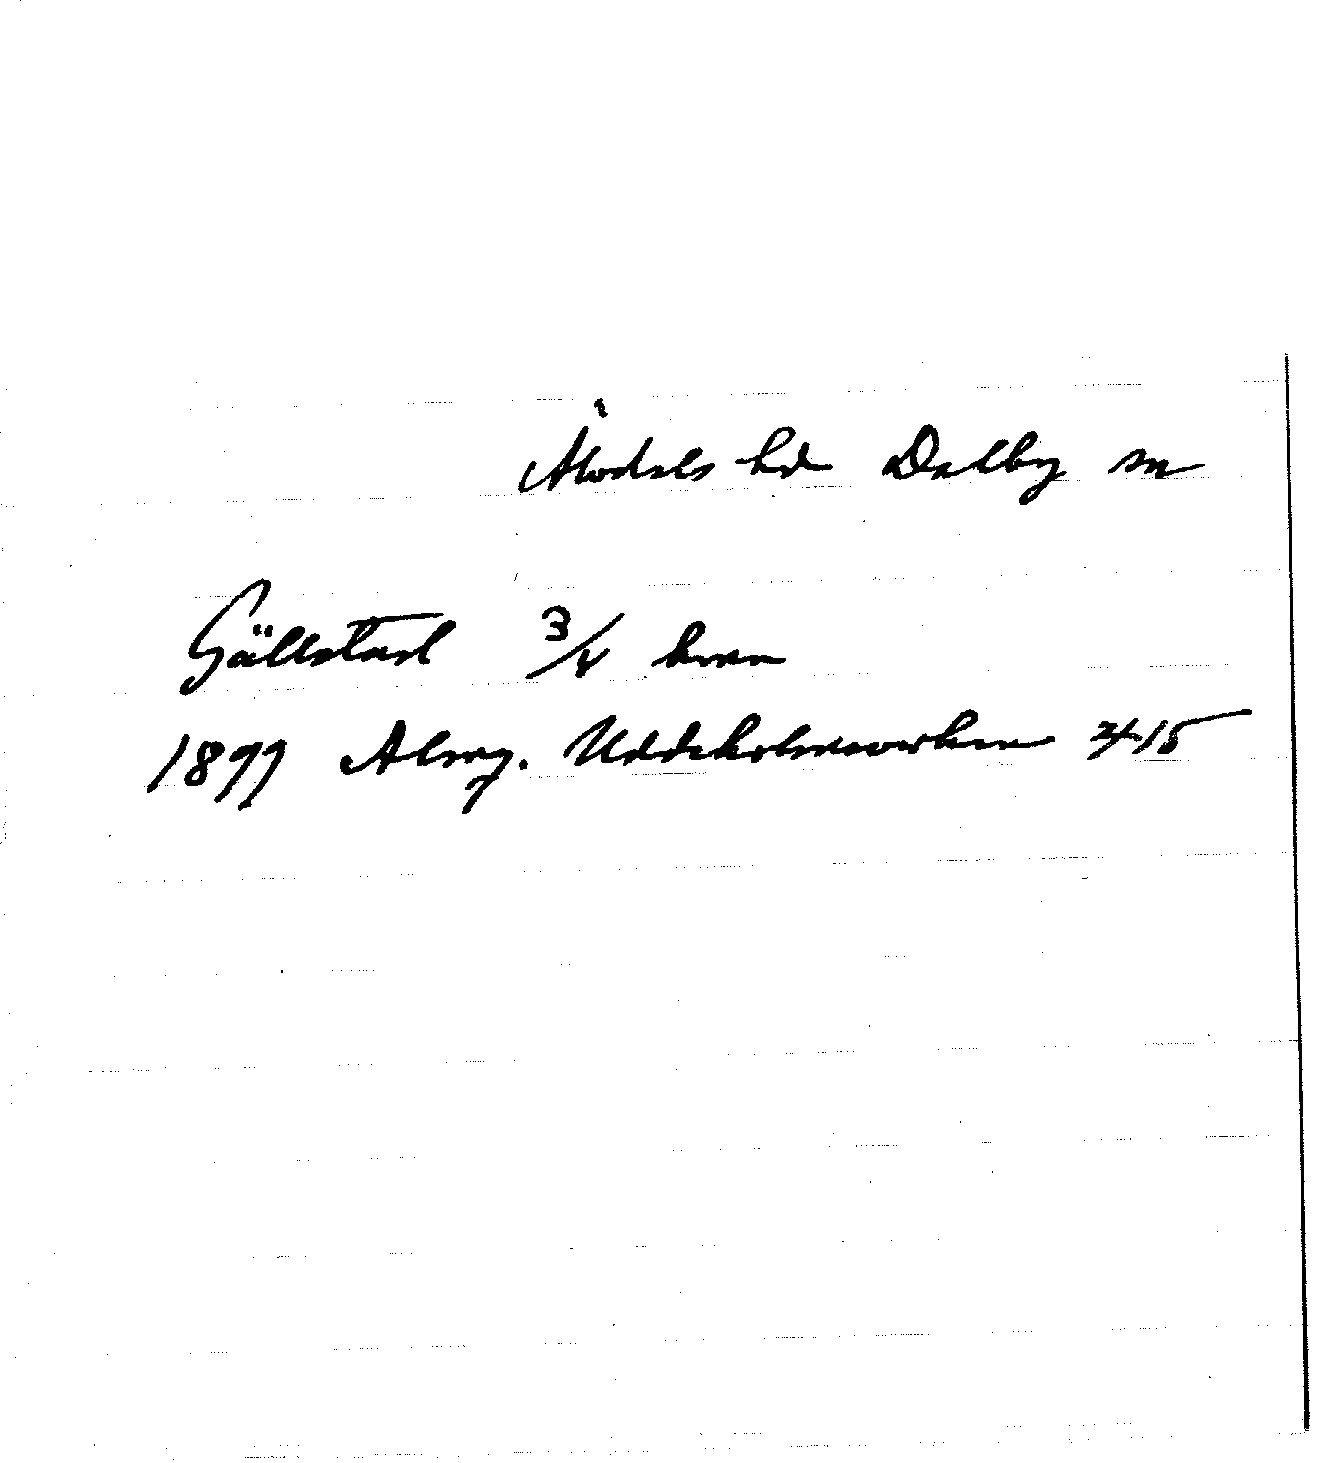 Älvdals hd Dalby sn
Gällstad 3/4 hmn
1899 Almg. Uddeholmsverken 415